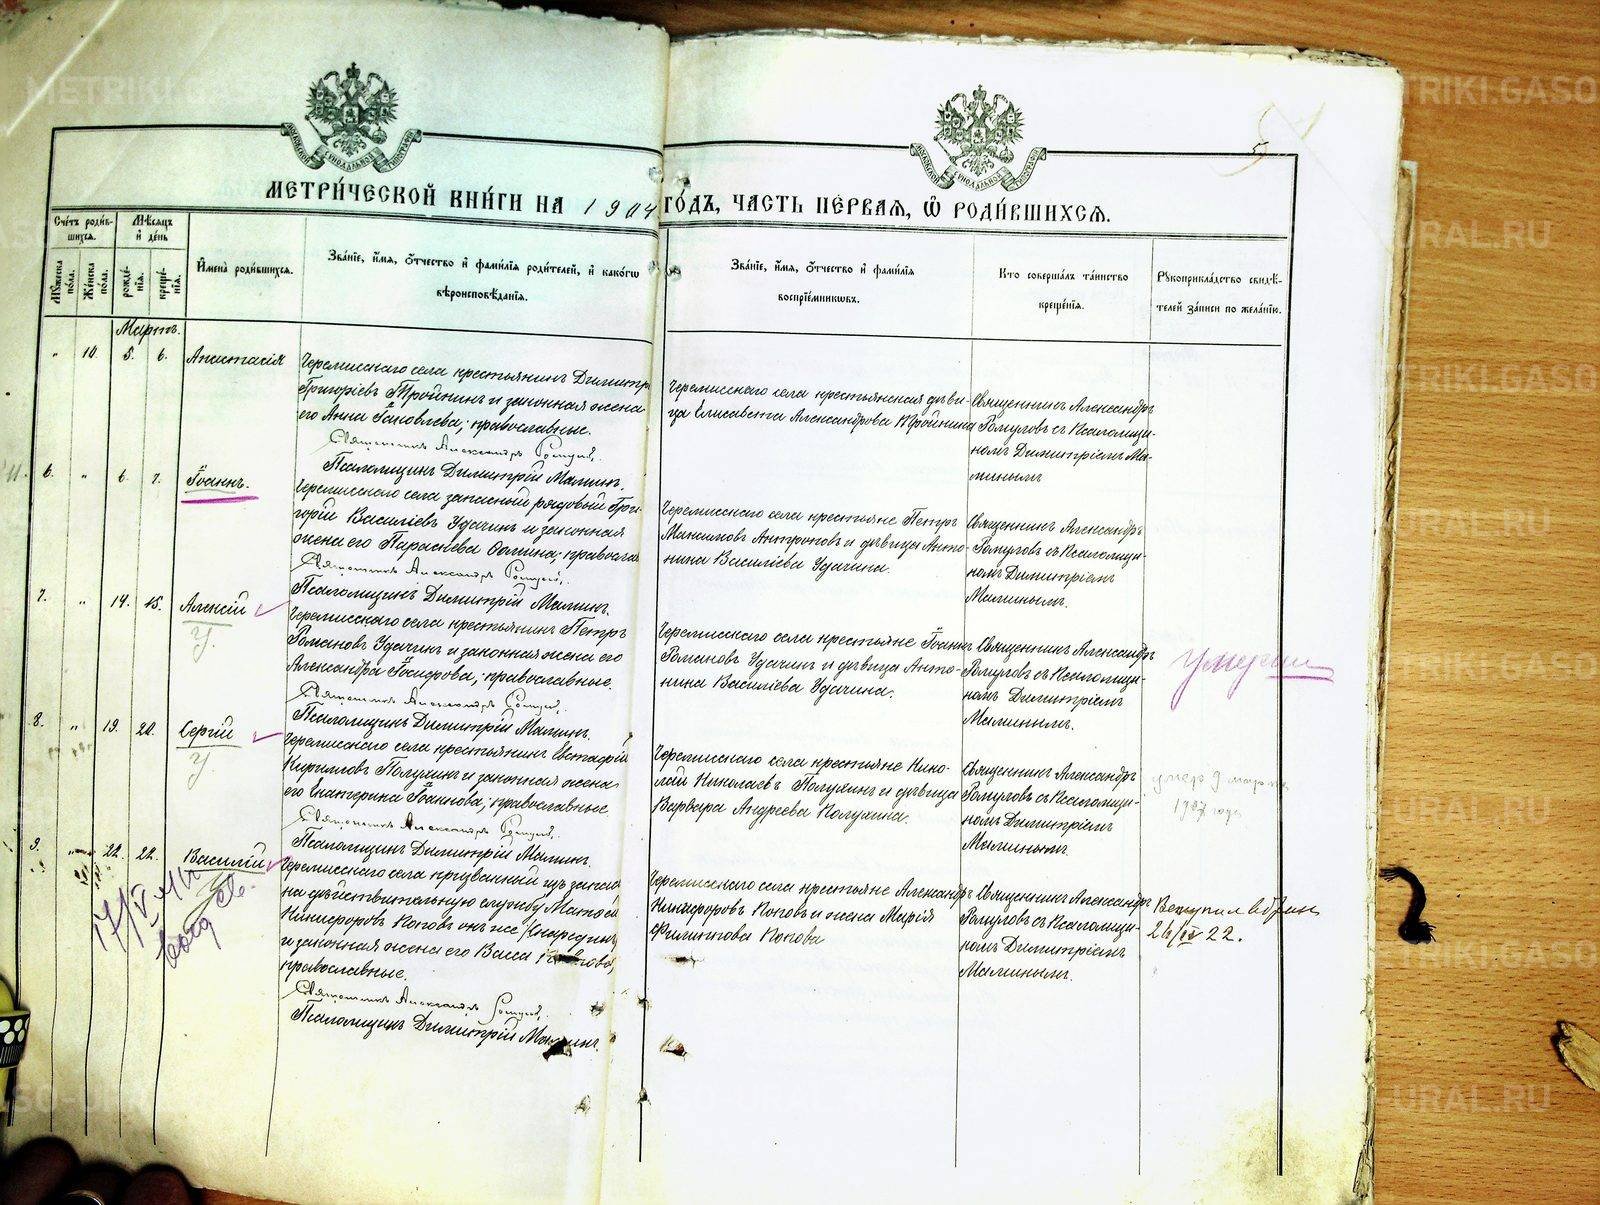 МЕТРИ́ЧЕСКОЙ КНИ́ГИ НА 1904 ГО́ДЪ, ЧАСТЬ ПЕ́РВАЯ, Ѽ РОДИ́ВШИХСЯ.
5
Сче́тъ роди́вшихся.
Мꙋжеска по́ла.
Же́нска по́ла.
Мѣ́сяцъ и де́нь
рожде́нія.
креще́нія.
И́мена̀ роди́вшихся.
Зва́нїе, и́мя, ѻ́тчество и фами́лїя роди́телей, и како́гѡ
вѣроисповѣ́данїѧ.
Зва́нїе, и́мя, ѻ́тчество и фами́лїя
воспрїе́мникѡвъ.
Кто̀ соверша́лъ та́инство
креще́нїѧ.
Рꙋкоприкла́дство свидѣ́-
телей за́писи по жела́нїю.
Мартъ.
" 10. 5. 6. Анастасія
Черемисскаго села крестьянинъ Димитрій
Григоріевъ Тройнинъ и законная жена
его Анна Іаковлева; православные.
Священникъ Александръ Ромуловъ.
Псаломщикъ Димитрій Маминъ.
Черемисскаго села крестьянская дѣви-
ца Елисавета Александрова Тройнина
Священникъ Александръ
Ромуловъ съ Псаломщи-
комъ Димитріемъ Ма-
минымъ
6. " 6. 7. Іоаннъ.
Черемисскаго села запасный рядовый Гри-
горій Василіевъ Удачинъ и законная
жена его Параскева
Священникъ Александръ Ромуловъ.
Псаломщикъ Димитрій Маминъ.
Черемисскаго села крестьяне Петръ
Максимовъ Антроповъ и дѣвица Анто-
нина Василіева Удачина.
Священникъ Александръ
Ромуловъ съ Псаломщи-
комъ Димитріемъ
Маминымъ.
7. " 14. 15. Алексій
У.
Черемисскаго села крестьянинъ Петръ
Романовъ Удачинъ и законная жена его
Александра Іосифова; православные.
Священникъ Александръ Ромуловъ.
Псаломщикъ Димитрій Маминъ.
Черемисскаго села крестьяне Іоаннъ
Романовъ Удачинъ и дѣвица Анто-
нина Василіева Удачина.
Священникъ Александръ
Ромуловъ съ Псаломщи-
комъ Димитріемъ
Маминымъ.
8. " 19. 20. Сергій
У.
Черемисскаго села крестьянинъ Евстафій
Кирилловъ Полухинъ и законная жена
его Екатерина Іоаннова; православные
Священникъ Александръ Ромуловъ.
Псаломщикъ Димитрій Маминъ.
Черемисскаго села крестьяне Нико-
лай Николаевъ Полухинъ и дѣвица
Варвара Андреева Полухина.
Священникъ Александръ
Ромуловъ съ Псаломщи-
комъ Димитріемъ
Маминымъ.
умеръ 9 марта
1907 года
9. " 22. 22. Василій
Черемисскаго села призванный изъ запаса
на дѣйствительную службу Матѳей
Никифоровъ Поповъ
и законная жена его Васса
православные.
Священникъ Александръ Ромуловъ.
Псаломщикъ Димитрій Маминъ.
Черемисскаго села крестьяне Александръ
Никифоровъ Поповъ и жена Марія
Филиппова Попова
Священникъ Александръ
Ромуловъ съ Псаломщи-
комъ Димитріемъ
Маминымъ.
Вступил в брак
26/IV 22.
METRIKI.GASO-URAL.RU